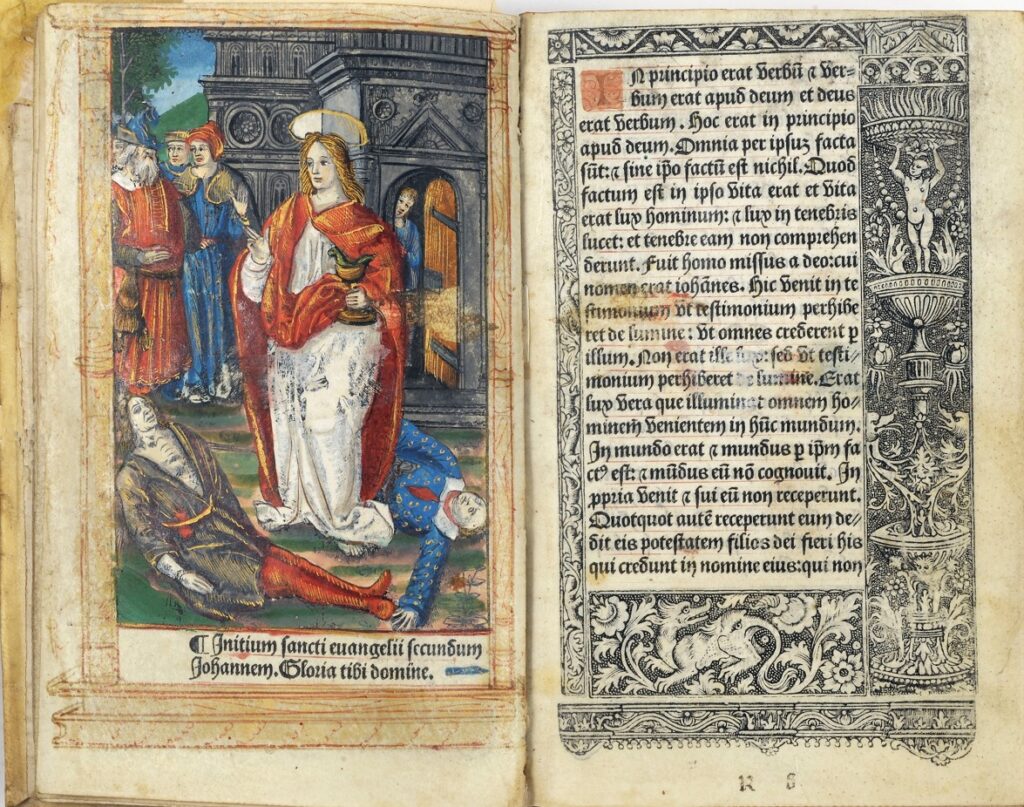 ¶ Initium sancti euangelii secundum
Johannem. Gloria tibi domine.
IN principio erat verbũ ⁊ ver-
bum erat apud deum et deus
erat verbum. Hoc erat in principio
apud deum. Omnia per ipsuz facta
sũt: ⁊ sine ip̃o factũ est nichil. Quod
factum est in ipso vita erat et vita
erat lux hominum: ⁊ lux in tenebris
lucet: et tenebre eam non comprehen
derunt. Fuit homo missus a deo: cui
nomen erat iohãnes. Hic venit in te
stimonium vt testimonium perhibe
ret de lumine: vt omnes crederent p
illum. Non erat ille lux: sed vt testi-
monium perhiberet de lumine. Erat
lux vera que illuminat omnem ho-
minem venientem in hũc mundum.
In mundo erat ⁊ mundus p ip̃m fa
ctꝰ est: ⁊ mũdus eũ nõ cognouit. In
ppria venit ⁊ sui eũ non receperunt.
Quotquot autẽ receperunt eum de-
dit eis potestatem filios dei fieri his
qui credunt in nomine eius: qui non